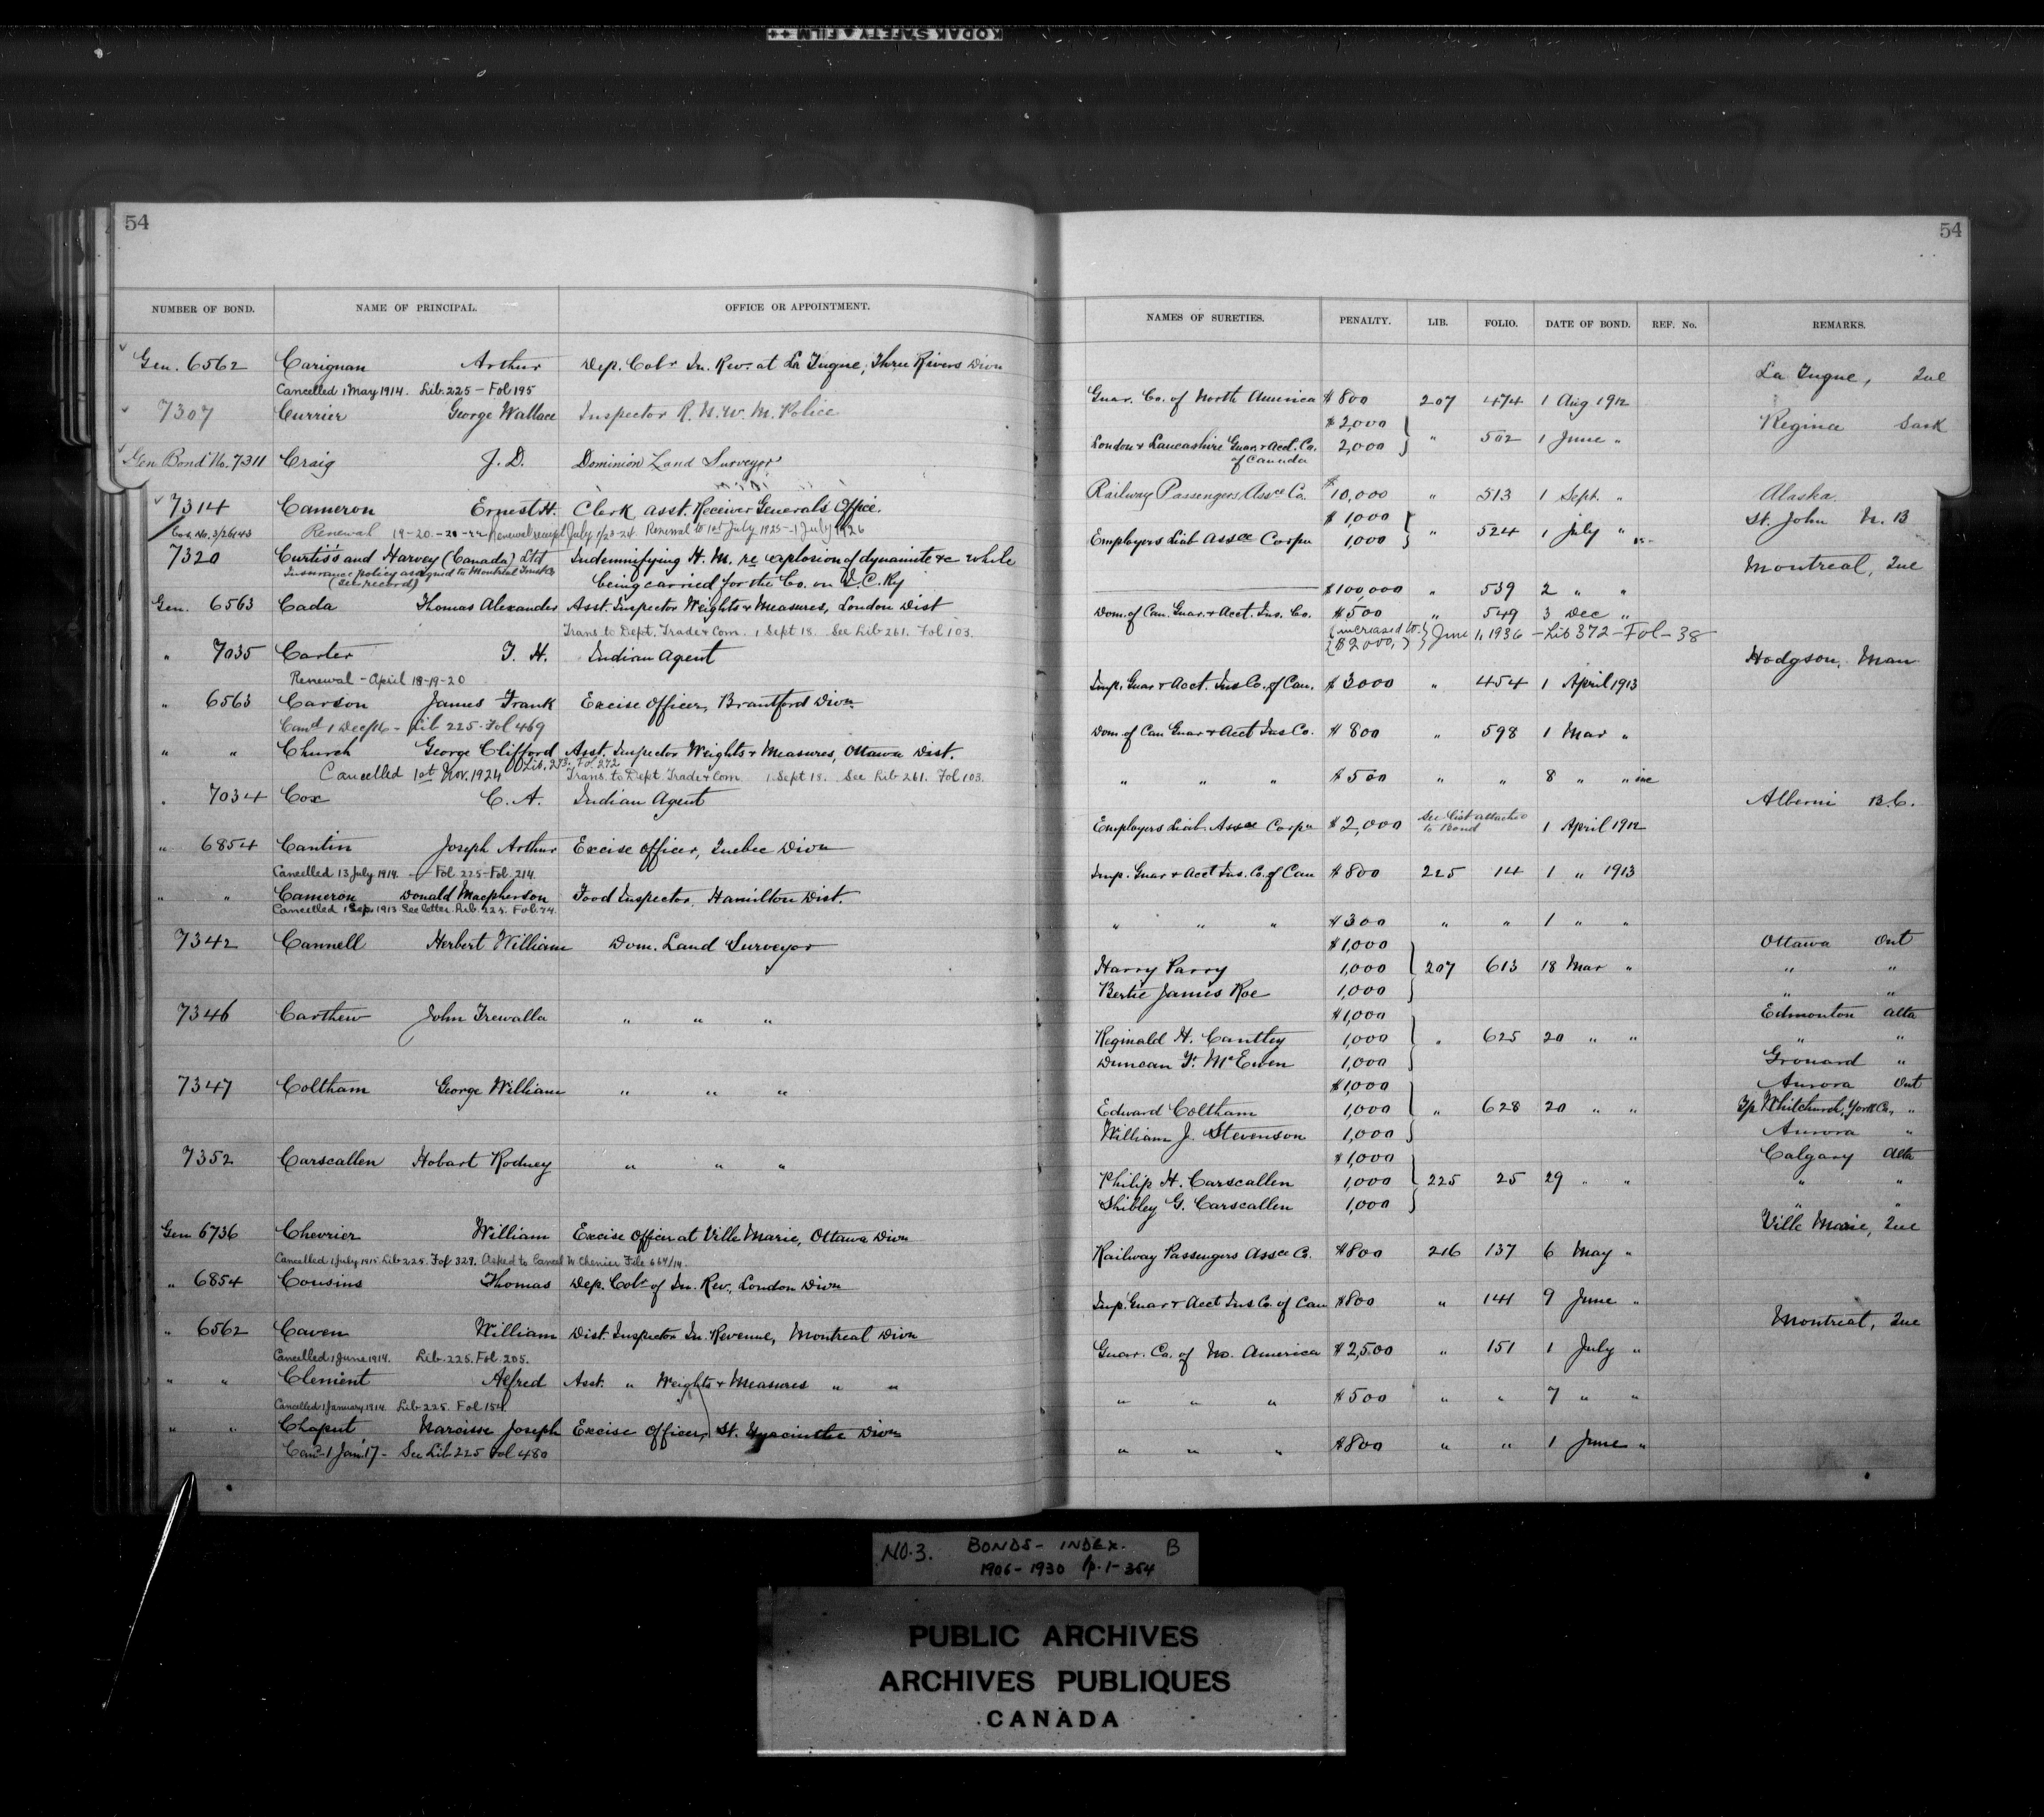 KODAK SAFETY FILM
54
NUMBER OF BOND. NAME OF PRINCIPAL. OFFICE OR APPOINTMENT.
Gen. 6562 Carignan Arthur Dep. Colr In. Rev. at La Tuque, Three Rivers Divn
Cancelled 1 May 1914. Lib. 225 - Fol 195
7307 Currier George Wallace Inspector R. N. W. M. Police
Gen Bond No. 7311 Craig J. D. Dominion Land Surveyor
7314 Cameron Ernest H. Clerk Asst. Receiver General's Office.
Renewal 19-20. Renewal receipt July 1/23-24 Renewal to 1st July 1925 - 1 July 1926
7320 Curtis's and Harvey (Canada) Ltd Indemnifying H. M. re explosion of dynamite &c while
Insurance policy assigned to Montreal Trust Co being carried for the Co. on I. C. Ry
(see record)
Gen. 6563 Cada Thomas Alexander Asst. Inspector Weights & Measures, London Dist
Trans. to Dept. Trade & Com. 1 Sept 18. See Lib 261. Fol 103.
" 7035 Carter T. H. Indian Agent
Renewal - April 18-19-20
" 6563 Carson James Frank Excise Officer, Brantford Divn
Cand 1 Dec/16 - Lib 225 - Fol 469
" " Church George Clifford Asst. Inspector Weights & Measures, Ottawa Dist.
Cancelled 1st Nov. 1924 Lib. 273. Fol. 272 Trans. to Dept. Trade & Com 1 Sept 18. See Lib 261. Fol 103.
" 7034 Cox C. A. Indian Agent
" 6854 Cantin Joseph Arthur Excise Officer, Quebec Divn
Cancelled 13 July 1914. - Fol. 225 - Fol. 214.
" " Cameron Donald Macpherson Food Inspector, Hamilton Dist.
Cancelled 1 Sep. 1913 See letter. Lib. 225. Fol. 74.
7342 Cannell Herbert William Dom. Land Surveyor
7346 Carthew John Trewalla " " "
7347 Coltham George William " " "
7352 Carscallen Hobart Rodney " " "
Gen 6736 Chevrier William Excise Officer at Ville Marie, Ottawa Divn
Cancelled 1 July 1915 Lib 225. Fol 329. Asked to Cancel W. Chenier File 664/14.
" 6854 Cousins Thomas Dep. Colr of In. Rev., London Divn
" 6562 Caven William Dist. Inspector In. Revenue, Montreal Divn
Cancelled 1 June 1914. Lib. 225. Fol. 205.
" " Clement Alfred Asst. " Weights & Measures " "
Cancelled 1 January 1914 Lib 225. Fol 154
" " Chaput Narcisse Joseph Excise Officer, St. Hyacinthe Divn
Cand 1 Jan. 17 - See Lib 225 Fol 480
54
NAMES OF SURETIES. PENALTY. LIB. FOLIO. DATE OF BOND. REF. No. REMARKS.
La Tuque, Que
Guar. Co. of North America $800 207 474 1 Aug 1912
$2,000 Regina Sask
London & Lancashire Guar. & Acct. Co. 2,000 " 502 1 June "
of Canada
Railway Passengers Assce Co. $10,000 " 513 1 Sept. " Alaska
$1000 St. John N. B
Employers Liab Assce Corpn 1,000 " 524 1 July "
Montreal, Que
$100,000 " 539 2 " "
Dom. of Can. Guar. & Acct. Ins. Co. $500 " 549 3 Dec "
(increased to $2000,) June 1, 1936 - Lib 372 - Fol - 38
Hodgson, Man
Imp. Guar & Acct. Ins Co. of Can. $3000 " 454 1 April 1913
Dom of Can Guar & Acct Ins Co. $800 " 598 1 Mar "
" " " $500 " " 8 " "
Alberni B.C.
Employers Liab. Assce Corpn $2,000 See List attached to Bond 1 April 1912
Imp. Guar & Acct Ins. Co. of Can $800 225 14 1 " 1913
" " " $300 " " 1 " "
$1,000 Ottawa Ont
Harry Parry 1,000 207 613 18 Mar " " "
Bertie James Roe 1,000 " "
$1,000 Edmonton Alta
Reginald H. Cantley 1,000 " 625 20 " " " "
Duncan F. McEwen 1,000 Grouard "
$1,000 Aurora Ont
Edward Coltham 1,000 " 628 20 " " Tp Whitchurch, York Co., "
William J. Stevenson 1,000 Aurora "
$1,000 Calgary Alta
Philip H. Carscallen 1,000 225 25 29 " " " "
Shibley G. Carscallen 1,000 " "
Ville Marie, Que
Railway Passengers Assce Co. $800 216 137 6 May "
Imp. Guar & Acct Ins Co. of Can $800 " 141 9 June "
Montreal, Que
Guar. Co. of No. America $2,500 " 151 1 July "
" " " $500 " " 7 " "
" " " $800 " " 1 June "
NO. 3. BONDS - INDEX. B
1906 - 1930 p. 1 - 354
PUBLIC ARCHIVES
ARCHIVES PUBLIQUES
CANADA